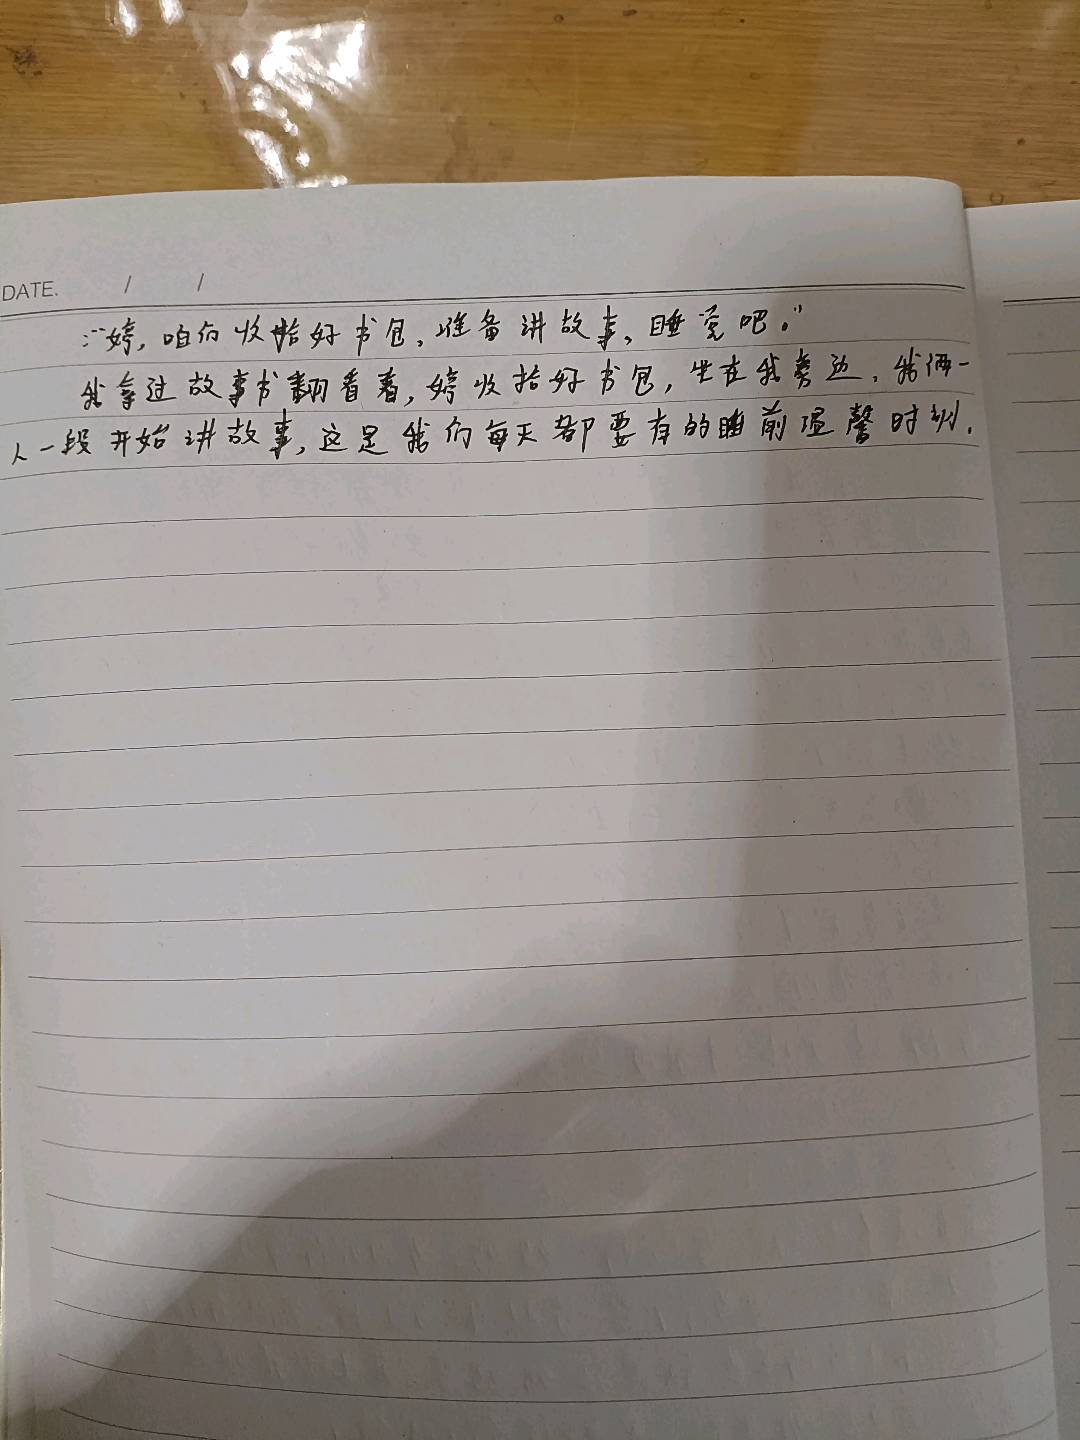 DATE. / /
:“婷，咱们收拾好书包，准备讲故事，睡觉吧。”
我拿过故事书翻看着，婷收拾好书包，坐在我旁边，我俩一
人一段开始讲故事，这是我们每天都要有的睡前温馨时刻．